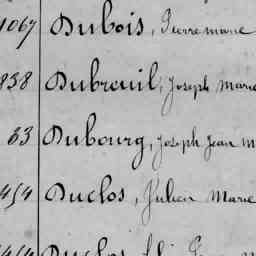 1067 Dubois, Pierre marie
838 Dubreuil, Joseph Marie
63 Dubourg, Joseph Jean M
454 Duclos, Julien Marie
Duclos